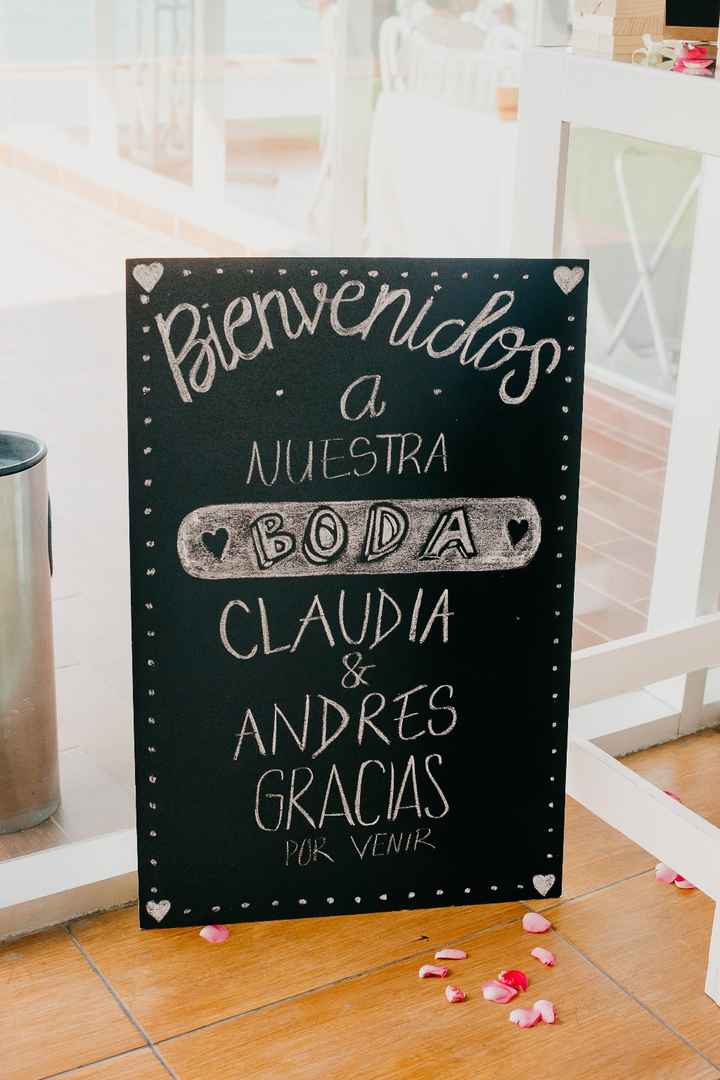 Bienvenidos
a
NUESTRA
BODA
CLAUDIA
&
ANDRES
GRACIAS
POR VENIR